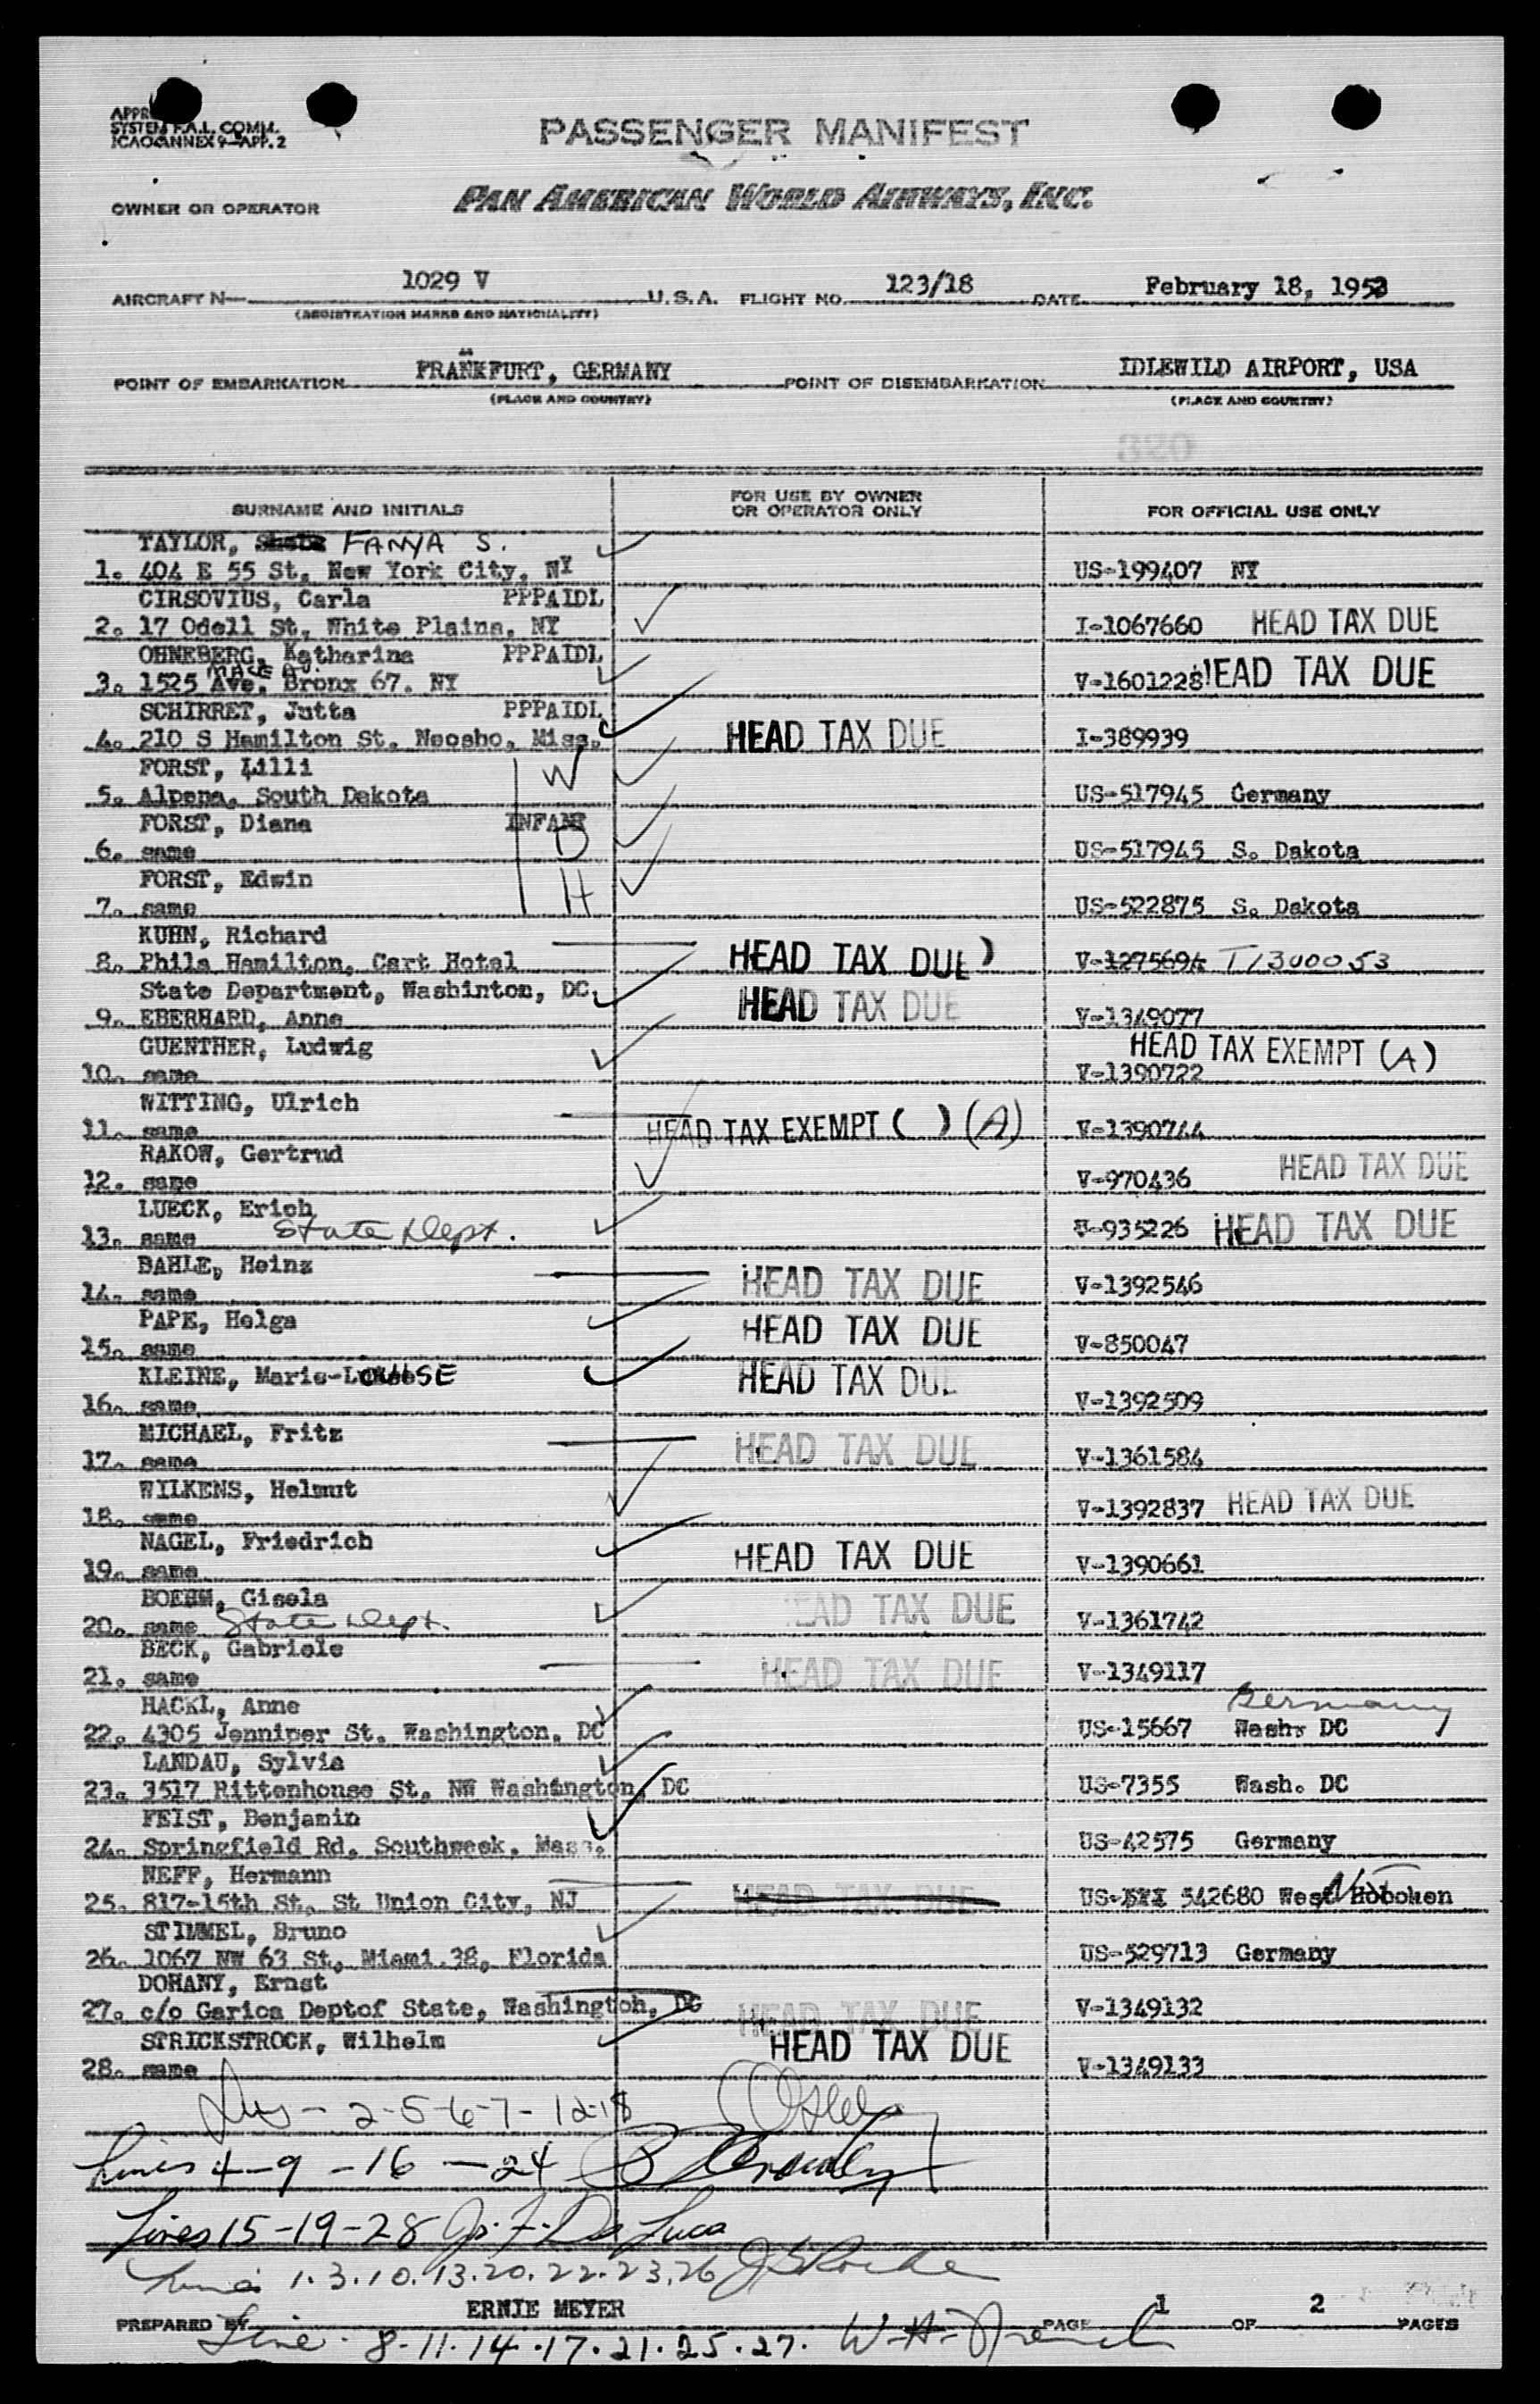 SYSTEM F.A.L. COMM.
ICAO ANNEX 9-APP. 2
PASSENGER MANIFEST
OWNER OR OPERATOR PAN AMERICAN WORLD AIRWAYS, INC.
AIRCRAFT N— 1029 V U.S.A. FLIGHT NO. 123/18 DATE February 18, 1953
(REGISTRATION MARKS AND NATIONALITY)
POINT OF EMBARKATION FRANKFURT, GERMANY POINT OF DISEMBARKATION IDLEWILD AIRPORT, USA
(PLACE AND COUNTRY) (PLACE AND COUNTRY)
SURNAME AND INITIALS FOR USE BY OWNER OR OPERATOR ONLY FOR OFFICIAL USE ONLY
TAYLOR, FANYA S.
1. 404 E 55 St. New York City, NY US-199407 NY
CIRSOVIUS, Carla PPPAIDL
2. 17 Odell St. White Plains, NY I-1067660 HEAD TAX DUE
OHNEBERG, Katharina PPPAIDL
MACE AV.
3. 1525 Ave. Bronx 67. NY V-1601228 HEAD TAX DUE
SCHIRRET, Jutta PPPAIDL
4. 210 S Hamilton St. Neosho, Miss. HEAD TAX DUE I-389939
FORST, Lilli W
5. Alpena, South Dakota US-517945 Germany
FORST, Diana INFANT
6. same D US-517945 S. Dakota
FORST, Edwin
7. same H US-522875 S. Dakota
KUHN, Richard
8. Phila Hamilton, Cart Hotel HEAD TAX DUE ) V-127569 T1300053
State Department, Washinton, DC. HEAD TAX DUE
9. EBERHARD, Anne V-1349077
GUENTHER, Ludwig HEAD TAX EXEMPT (A)
10. same V-1390722
WITTING, Ulrich
11. same HEAD TAX EXEMPT ( ) (A) V-1390744
RAKOW, Gertrud HEAD TAX DUE
12. same V-970436
LUECK, Erich
13. same State Dept. V-935226 HEAD TAX DUE
BAHLE, Heinz
14. same HEAD TAX DUE V-1392546
PAPE, Helga
15. same HEAD TAX DUE V-850047
KLEINE, Marie-LOUISE HEAD TAX DUE
16. same V-1392509
MICHAEL, Fritz
17. same HEAD TAX DUE V-1361584
WILKENS, Helmut
18. same V-1392837 HEAD TAX DUE
NAGEL, Friedrich
19. same HEAD TAX DUE V-1390661
BOEHM, Gisela
20. same State Dept. HEAD TAX DUE V-1361742
BECK, Gabriele
21. same HEAD TAX DUE V-1349117
HACKL, Anne Germany
22. 4305 Jenniper St. Washington, DC US-15667 Wash. DC
LANDAU, Sylvia
23. 3517 Rittenhouse St. NW Washington, DC US-7355 Wash. DC
FEIST, Benjamin
24. Springfield Rd. Southweek, Mass. US-42575 Germany
NEFF, Hermann
25. 817-15th St. St Union City, NJ HEAD TAX DUE US- 542680 West Hoboken
STIMMEL, Bruno
26. 1067 NW 63 St. Miami.38, Florida US-529713 Germany
DOHANY, Ernst
27. c/o Garica Deptof State, Washingtoh, DC HEAD TAX DUE V-1349132
STRICKSTROCK, Wilhelm HEAD TAX DUE
28. same V-1349133
2-5-6-7-12-18
Lines 4-9-16-24
Lines 15-19-28 De Luca
Lines 1.3.10.13.20.22.23.26
PREPARED BY ERNIE MEYER PAGE 1 OF 2 PAGES
Line 8-11.14.17.21.25.27. W. H. French